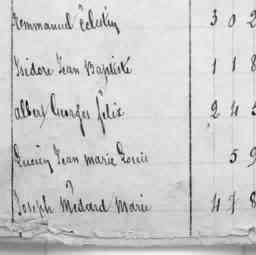 Emmanuel Célestin 3 0 2
Isidore Jean Baptiste 1 1 8
Albert Georges Félix 2 4 5
Lucien Jean Marie Louis 5 9
Joseph Médard Marie 4 7 8